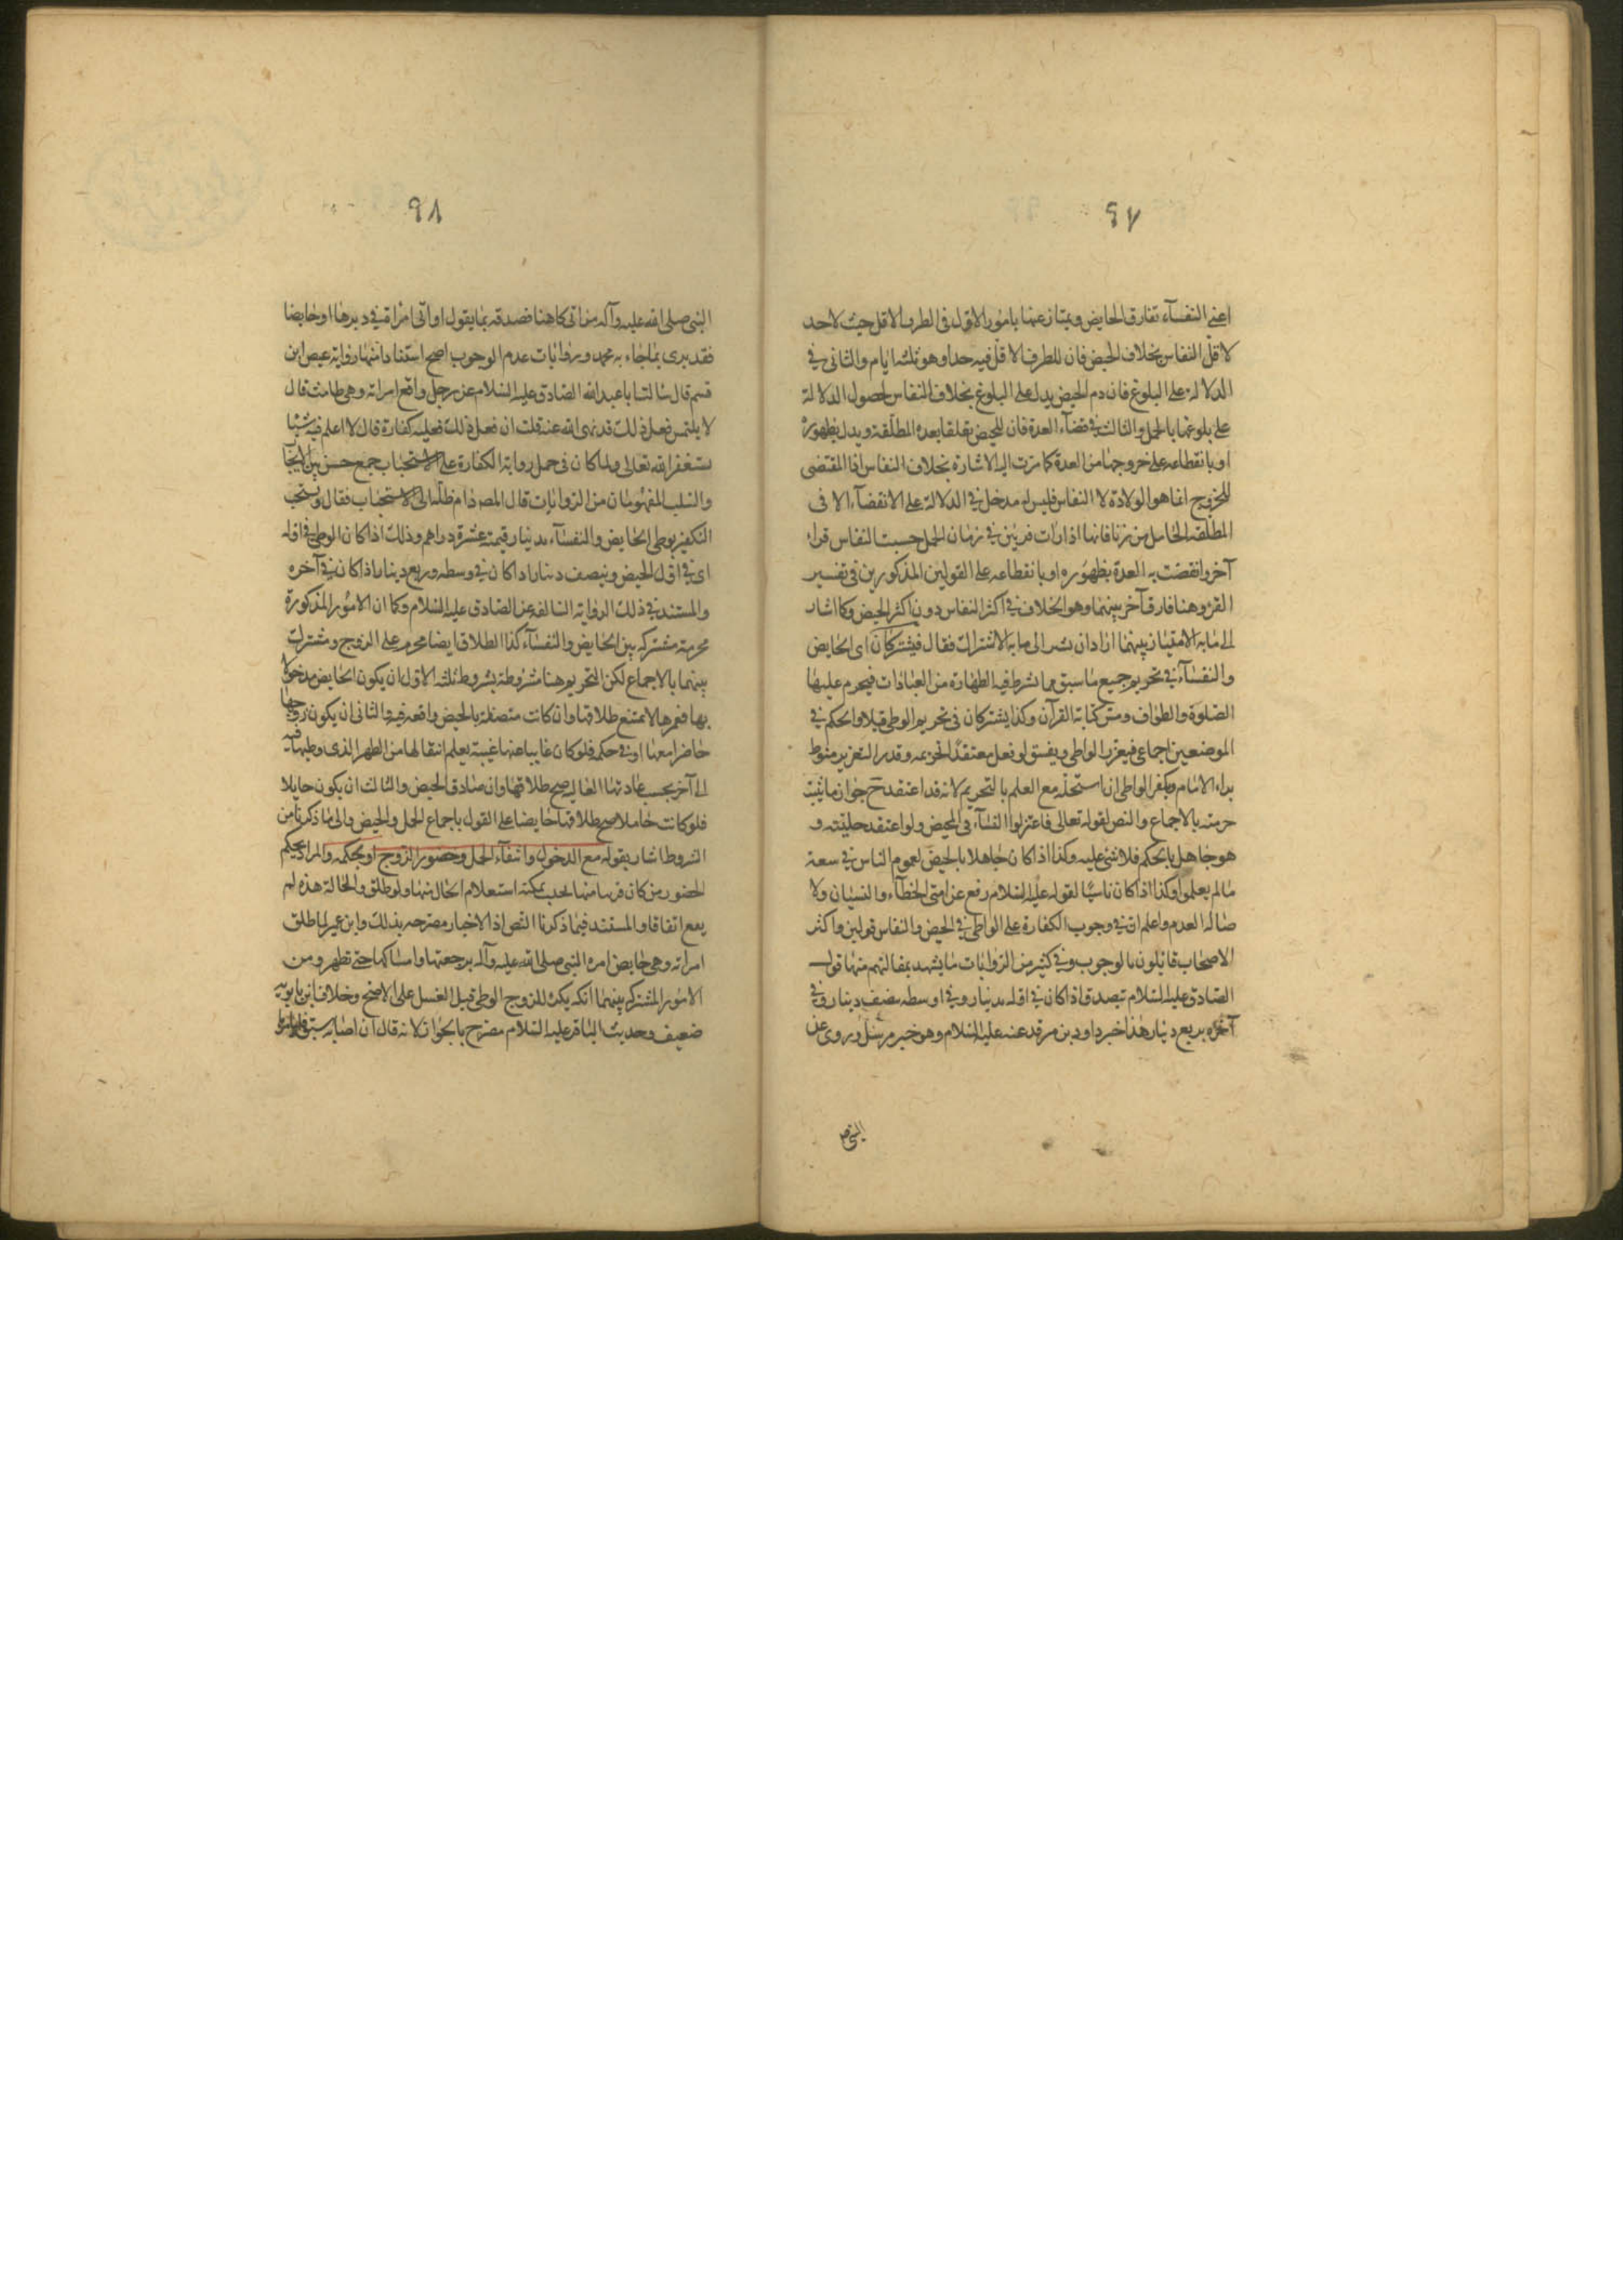 ٩٧
اعنى النفسآء تفارق الحايض ويمتاز عنها بامور الاول فى الطرف الاقل حيث لاحد
لاقل النفاس بخلاف الحيض فان للطرف الاقل فيه حدا وهو ثلثه ايام والثانى فى
الدلالة على البلوغ فان دم الحيض يدل على البلوغ بخلاف النفاس لحصول الدلالة
على بلوغها بالحمل والثالث فى قضآء العدة فان للحيض تعلقا بعدة المطلقة ويدل بظهوره
او بانقطاعه على خروجها من العدة كما مرت اليه الاشارة بخلاف النفاس اذ المقتضى
للخروج انما هو الولادة لا النفاس فليس له مدخل فى الدلالة على الانقضآء الا فى
المطلقه الحامل من زنا فانها اذا رات قرئين فى زمان الحمل حسبت النفاس قراء
آخر وانقضت به العدة بظهوره او بانقطاعه على القولين المذكورين فى تفسير
القرء وهنا فارق آخر بينهما وهو الخلاف فى اكثر النفاس دون اكثر الحيض وكما اشار
الى ما به الامتياز بينهما اراد ان يشير الى ما به الاشتراك فقال فيشتركان اى الحايض
والنفسآء فى تحريم جميع ما سبق مما شرط فيه الطهارة من العبادات فيحرم عليها
الصلوة والطواف ومس كتابة القرآن وكذا يشتركان فى تحريم الوطى قبلا والحكم فى
الموضعين اجماعى فيعزر الواطى ويفسق لو فعل معتقدا لتحريمه وقدر التعزير منوط
براء الامام ويكفر الواطى ان استحله مع العلم بالتحريم لانه قد اعتقد ح جواز ما ثبت
حرمته بالاجماع والنص لقوله تعالى فاعتزلوا النسآء فى المحيض ولو اعتقد حليته و
هو جاهل بالحكم فلا شئ عليه وكذا اذا كان جاهلا بالحيض لعموم الناس فى سعة
مالم يعلموا وكذا اذا كان ناسيا لقوله عليه السلام رفع عن امتى الخطآء والنسيان ولا
صالة العدم واعلم ان فى وجوب الكفارة على الواطى فى الحيض والنفاس قولين واكثر
الاصحاب قائلون بالوجوب وفى كثير من الروايات ما يشهد بمقالتهم منها قول
الصادق عليه السلام تصدق اذا كان فى اقله بدينار وفى اوسطه بنصف دينار وفى
آخره بربع دينار هذا خبر داود بن فرقد عنه عليه السلام وهو خبر مرسل وروى عن
النبى ص
٩٨
النبى صلى الله عليه وآله من اتى كاهنا فصدقه بما يقول او اتى امراة فى دبرها او حايضا
فقد برى بما جاء به محمد وروايات عدم الوجوب اصح استنادا منها رواية عيص ابن
قسم قال سالت ابا عبدالله الصادق عليه السلام عن رجل واقع امراته وهى طامث قال
لا يلتمس فعل ذلك قد نهى الله عنه قلت ان فعل ذلك فعليه كفارة قال لا اعلم فيه شيئا
يستغفر الله تعالى ولما كان فى حمل رواية الكفارة على الاستحباب جمع حسن بين الايجاب
والسلب المفهومان من الروايات قال المصـ دام ظله الى الاستحباب فقال ويستحب
التكفير بوطى الحايض والنفسآء بدينار قيمته عشرة دراهم وذلك اذا كان الوطى فى اوله
اى فى اول الحيض وبنصف دينار اذا كان فى وسطه وربع دينار اذا كان فى آخره
والمستند فى ذلك الرواية السالفه عن الصادق عليه السلام وكما ان الامور المذكورة
محرمة مشتركه بين الحايض والنفسآء كذا الطلاق ايضا محرم على الزوج ومشترك
بينهما بالاجماع لكن التحريم هنا مشروطة بشروط ثلثه الاول ان يكون الحايض مدخولا
بها فغيرها لا يمتنع طلاقها وان كانت متصفة بالحيض واقعه فيه والثانى ان يكون زوجها
حاضرا معها او فى حكمه فلو كان غايبا عنها غيبة يعلم انتقالها من الطهر الذى وطيها فيه
الى آخر بحسب عادتها الغالبه صح طلاقها وان صادف الحيض والثالث ان يكون حايلا
فلو كانت حاملا صح طلاقها حايضا على القول باجماع الحمل والحيض والى ما ذكرنا من
الشروط اشار بقوله مع الدخول وانتفآء الحمل وحضور الزوج او بحكمه والمراد بحكم
الحضور من كان قريبا منها بحيث يمكنه استعلام الحال منها ولو طلق والحالة هذه لم
يقع اتفاقا والمستند فيما ذكرنا النص اذ الاخبار مصرحه بذلك وابن عمر لما طلق
امراته وهى حايض امره النبى صلى الله عليه وآله برجعتها وامساكها حتى تطهر ومن
الامور المشتركه بينهما انكه يكره للزوج الوطى قبل الغسل على الاصح وخلاف ابن بابويه
ضعيف وحديث الباقر عليه السلام مصرح بالجواز لانه قال ان اصابه سبق